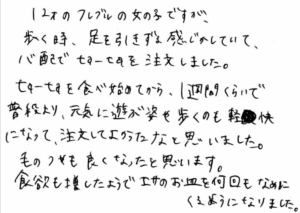 12才のフレブルの女の子ですが、
歩く時、足を引きずる感じがしていて、
心配で セターセタを注文しました。
セターセタを食べ始めてから、1週間くらいで
普段より、元気に遊ぶ姿や歩くのも軽快
になって、注文してよかったなと思いました。
毛のツヤも良くなったと思います。
食欲も増したようでエサのお皿を何回もなめに
くるようになりました。